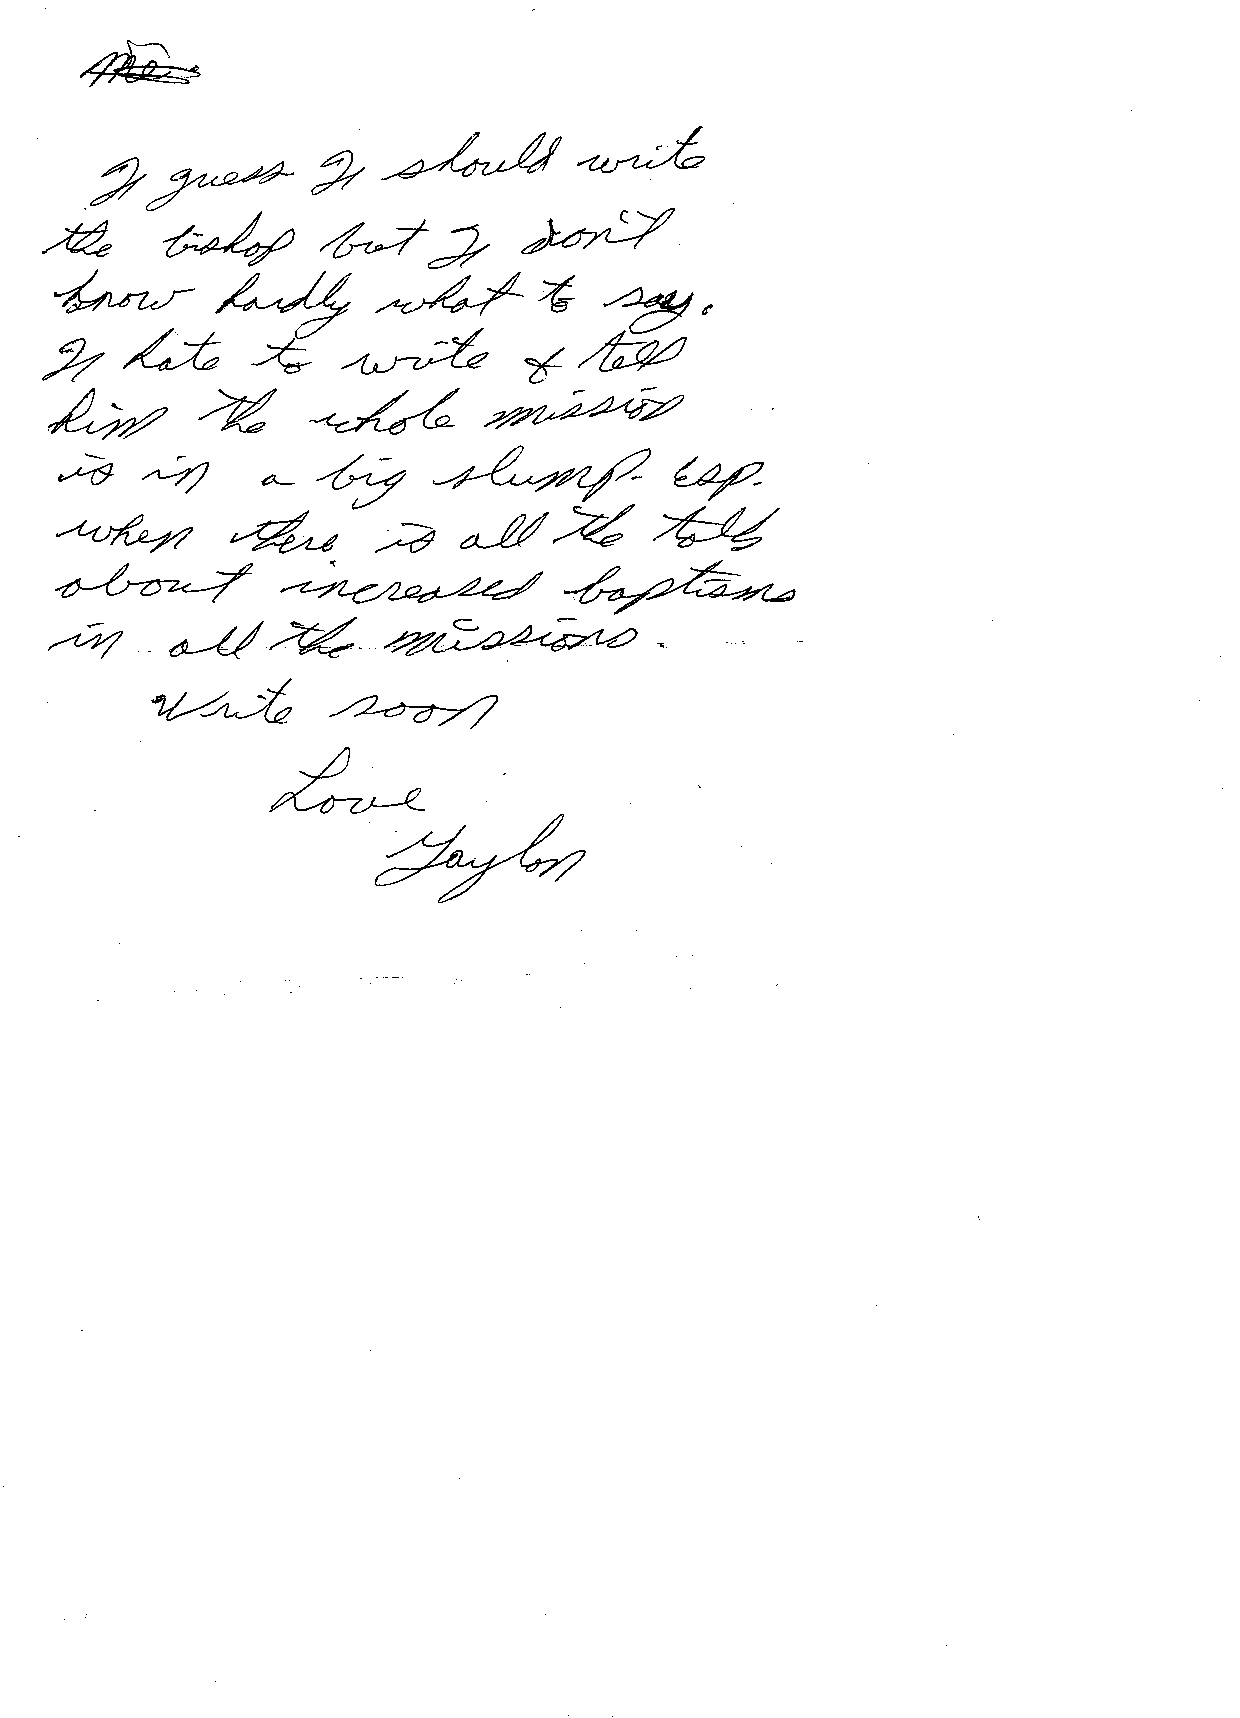 I guess I should write
the bishop but I don't
know hardly what to say.
I hate to write & tell
him the whole mission
is in a big slump. Esp.
when there is all the talk
about increased baptisms
in all the missions.
Write soon
Love
Gaylon